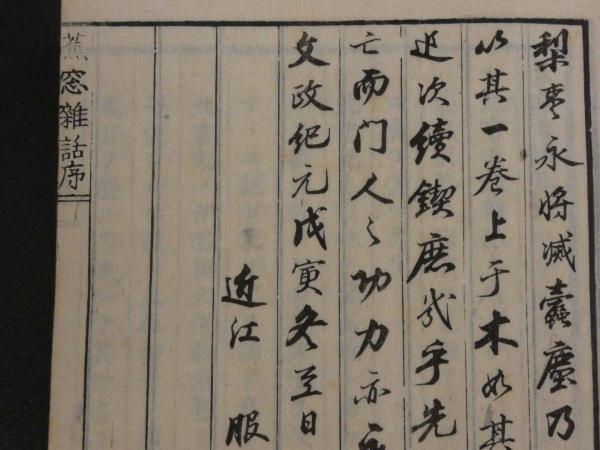 梨棗永将滅蠹塵乃
以其一卷上于木如其
次續鍥庶幾乎先
亡而门人之功力亦
文政紀元戊寅冬至日
近江 服
蕉窓雜話序